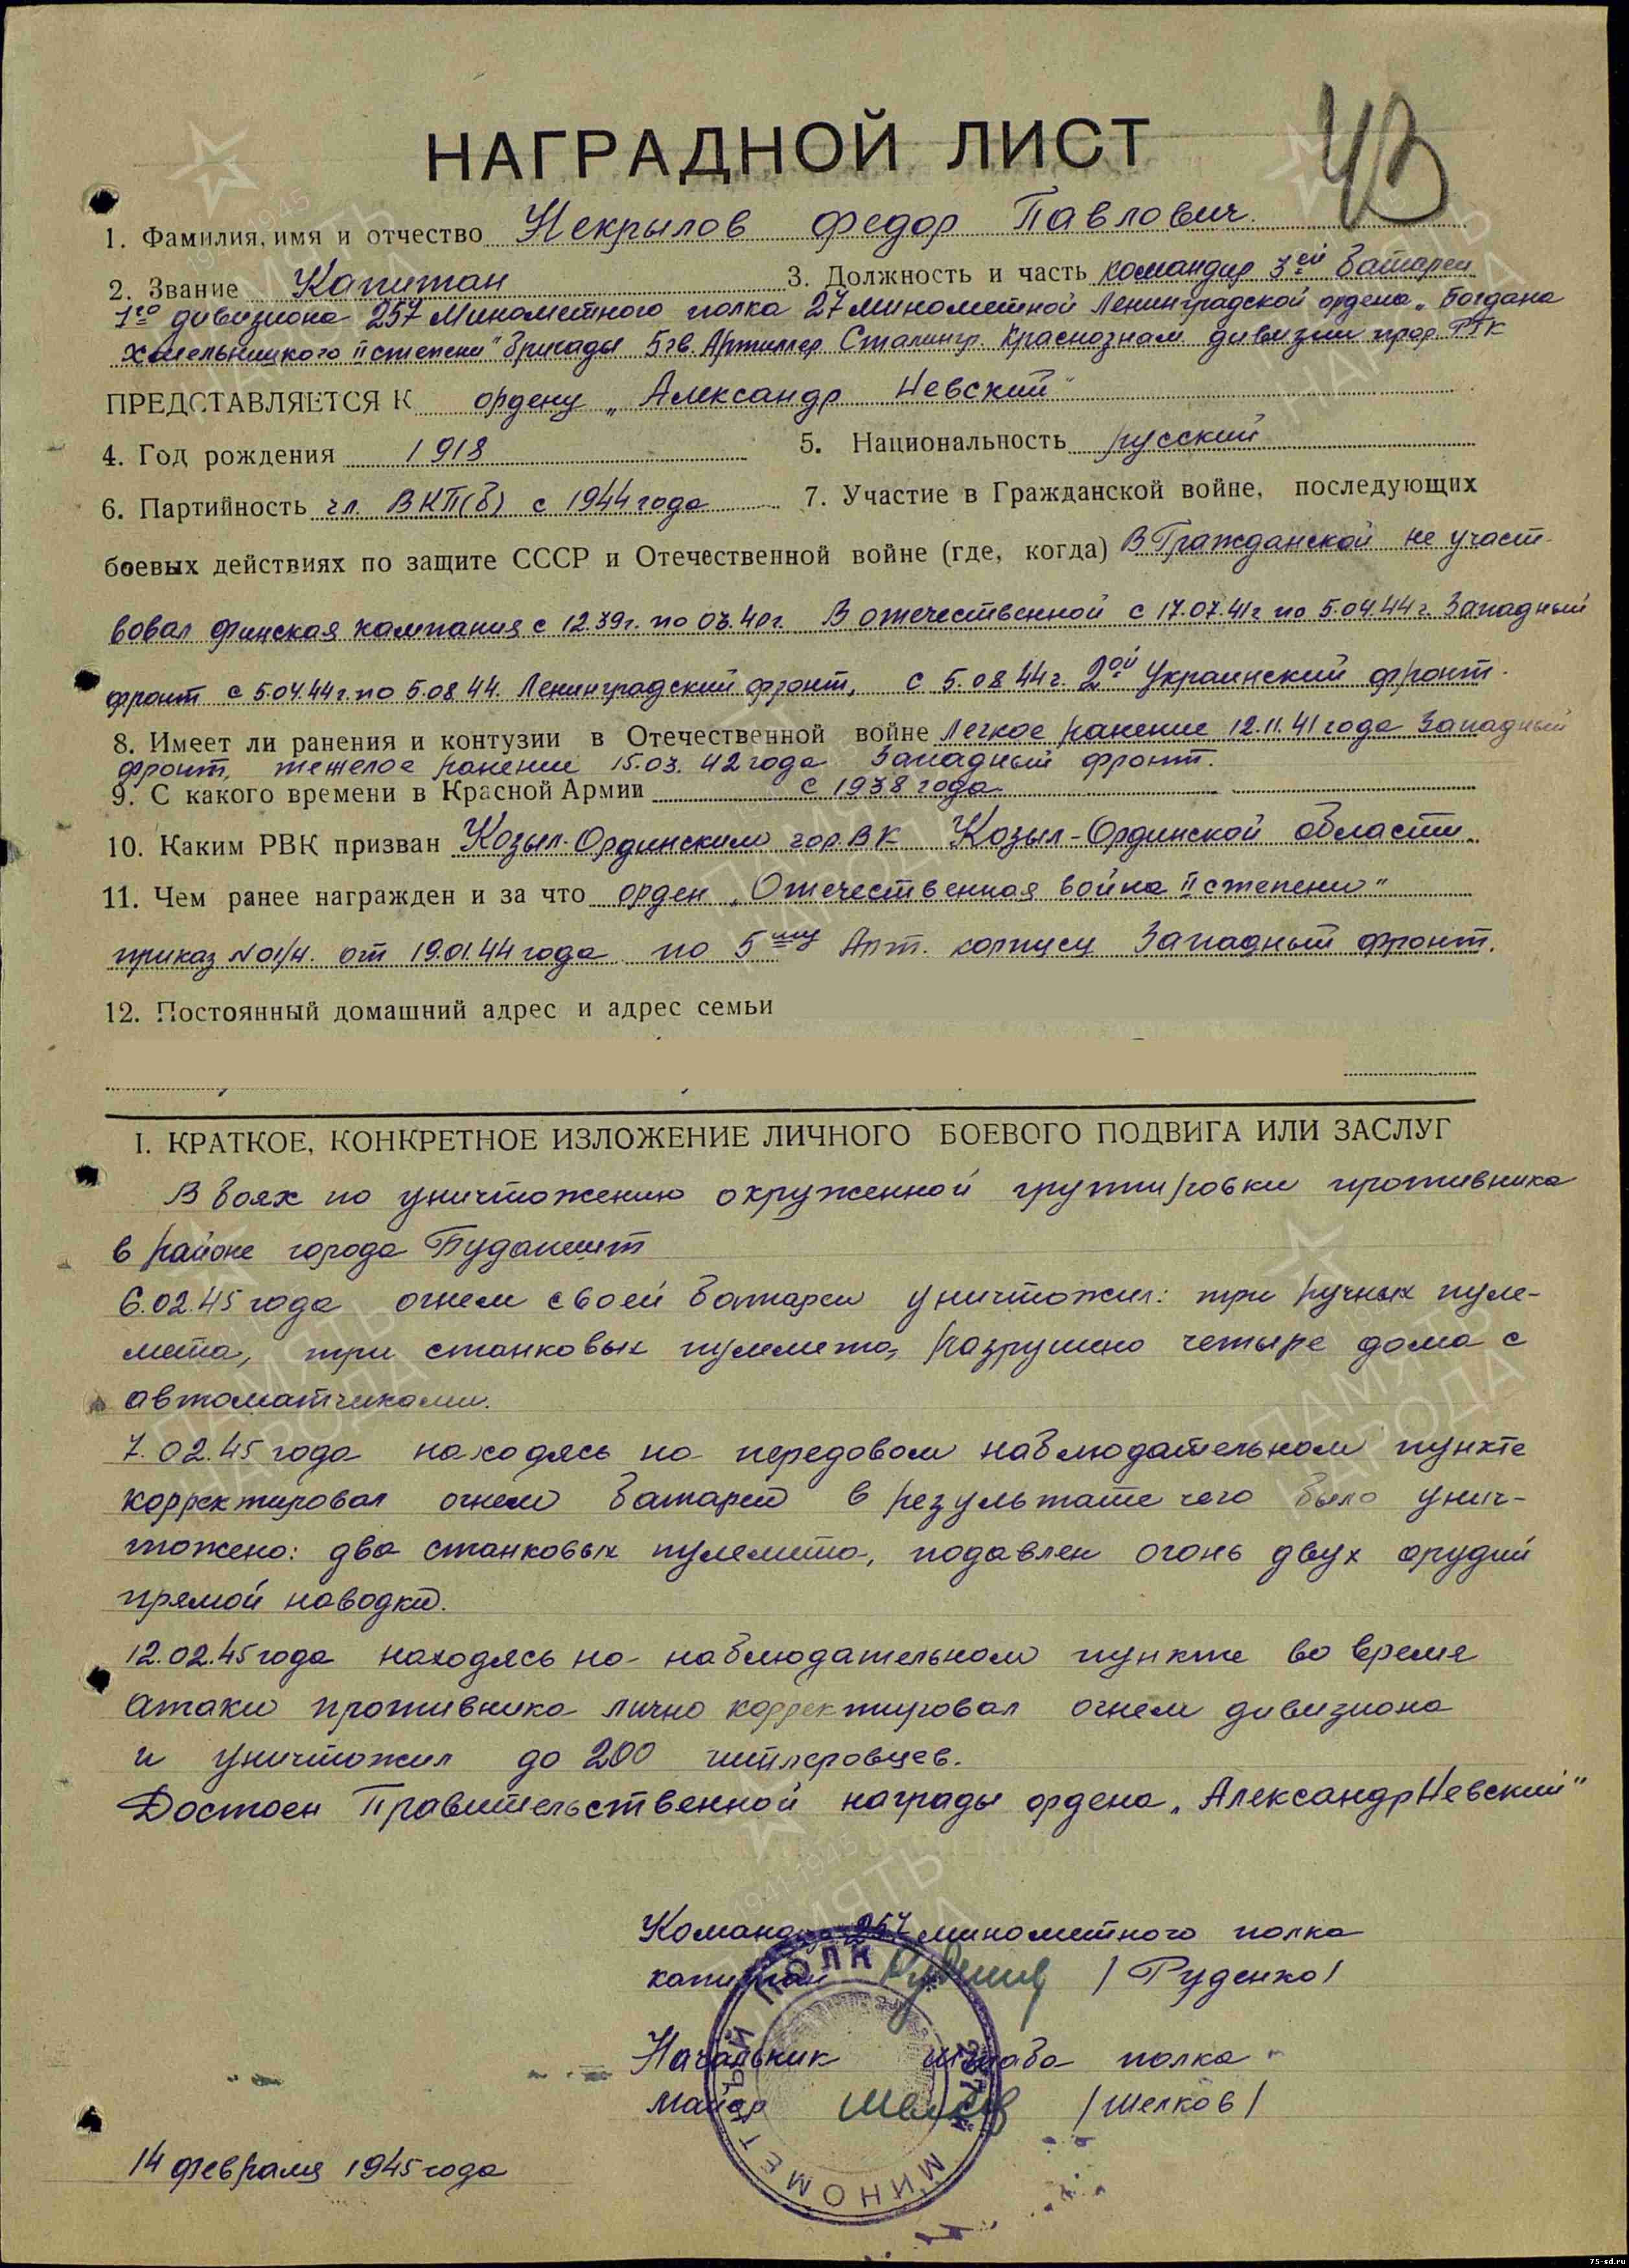 43
НАГРАДНОЙ ЛИСТ
1. Фамилия, имя и отчество Некрылов Федор Павлович.
2. Звание Капитан 3. Должность и часть командир 3ей батареи
1го дивизиона 257 Минометного полка 27 минометной Ленинградской ордена „Богдана
Хмельницкого II степени" бригады 5 гв. Артиллер. Сталингр. Краснознам дивизии прор. РГК
ПРЕДСТАВЛЯЕТСЯ К ордену „Александр Невский"
4. Год рождения 1918 5. Национальность русский
6. Партийность чл. ВКП(б) с 1944 года 7. Участие в Гражданской войне, последующих
боевых действиях по защите СССР и Отечественной войне (где, когда) В Гражданской не участ-
вовал финская кампания с 12.39г. по 03.40г. В отечественной с 17.07.41г по 5.04.44г. Западный
фронт с 5.04.44г. по 5.08.44. Ленинградский фронт, с 5.08.44г. 2ой Украинский фронт.
8. Имеет ли ранения и контузии в Отечественной войне Легкое ранение 12.11.41 года Западный
фронт, тежелое ранение 15.03.42 года Западный фронт.
9. С какого времени в Красной Армии с 1938 года.
10. Каким РВК призван Козыл-Ординским гор. ВК Козыл-Ординской области.
11. Чем ранее награжден и за что орден „Отечественная война II степени"
приказ N 01/н. от 19.01.44 года по 5му Арт. корпусу Западный фронт.
12. Постоянный домашний адрес и адрес семьи
I. КРАТКОЕ, КОНКРЕТНОЕ ИЗЛОЖЕНИЕ ЛИЧНОГО БОЕВОГО ПОДВИГА ИЛИ ЗАСЛУГ
В боях по уничтожению окруженной группировки противника
в районе города Будапешт
6.02.45 года огнем своей батареи уничтожил: три ручных пуле-
мета, три станковых пулемета, разрушено четыре дома с
автоматчиками.
7.02.45 года находясь на передовом наблюдательном пункте
корректировал огнем батареи в результате чего было унич-
тожено: два станковых пулемета, подавлен огонь двух орудий
прямой наводки.
12.02.45 года находясь на наблюдательном пункте во время
атаки противника лично корректировал огнем дивизиона
и уничтожил до 200 гитлеровцев.
Достоен Правительственной награды ордена „Александр Невский"
Командир 257 минометного полка
капитан /Руденко/
Начальник штаба полка
майор /Шелков/
257й МИНОМЕТНЫЙ ПОЛК
14 февраля 1945 года
ПАМЯТЬ НАРОДА
1941-1945
75-sd.ru